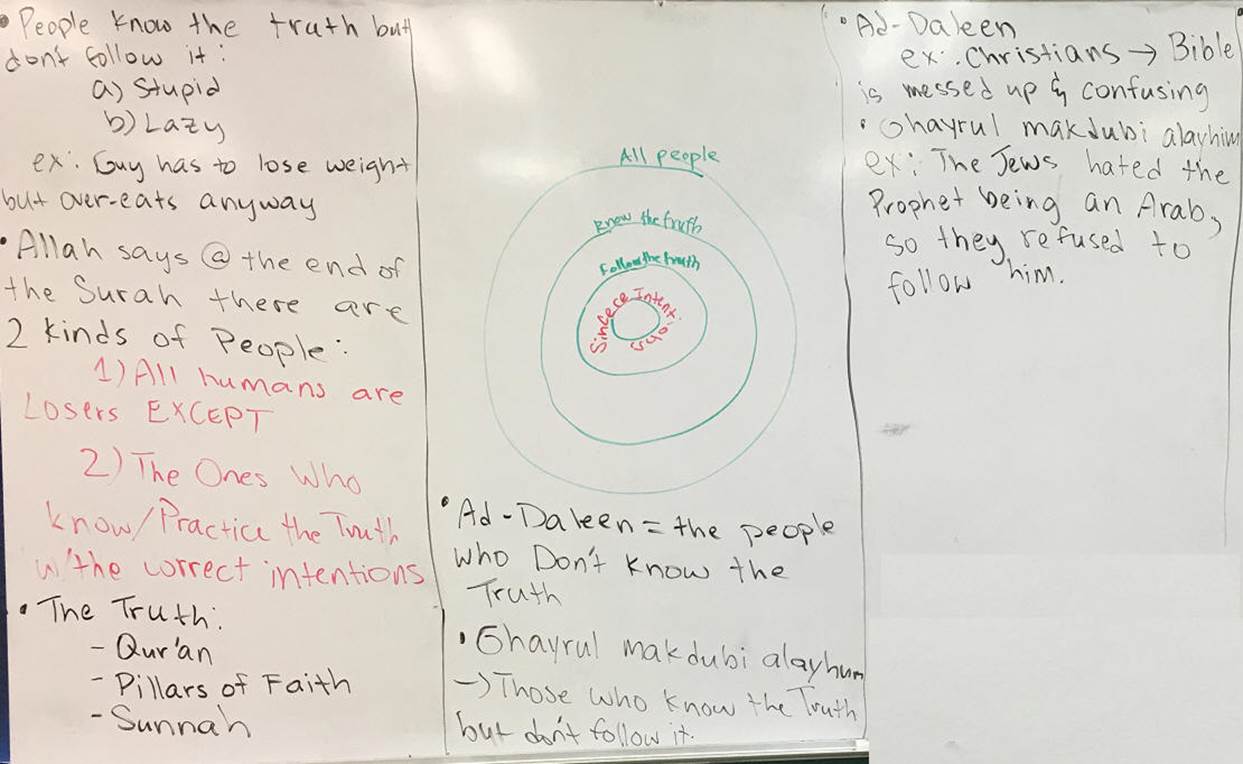 • People know the truth but
dont follow it:
a) Stupid
b) Lazy
ex: Guy has to lose weight
but over-eats anyway
• Allah says @ the end of
the Surah there are
2 kinds of People:
1) All humans are
Losers EXCEPT
2) The Ones Who
know/Practice the Truth
w/the correct intentions
• The Truth:
- Qur'an
- Pillars of Faith
- Sunnah
All people
know the truth
Follow the truth
Sincere Intentions
• Ad-Daleen = the people
who Don't know the
Truth
• Ghayrul makdubi alayhum
-> Those who know the Truth
but don't follow it.
• Ad-Daleen
ex: Christians → Bible
is messed up & confusing
• Ghayrul makdubi alayhim
ex: The Jews hated the
Prophet being an Arab,
so they refused to
follow him.